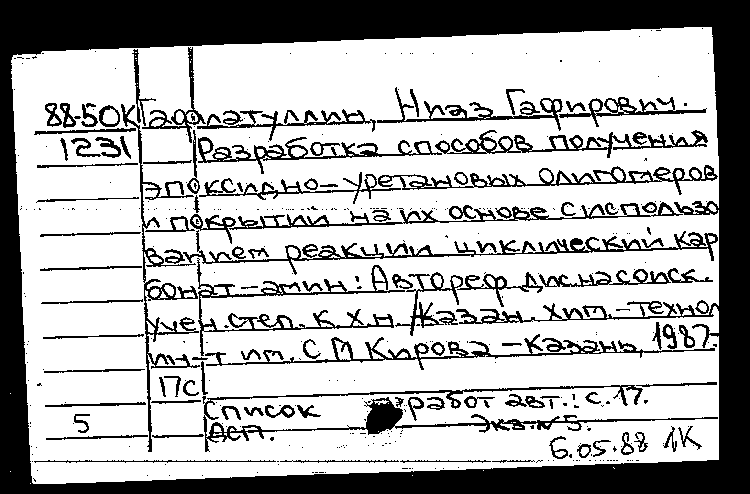 88-50К Гафиатуллин, Нияз Гафирович.
1231 Разработка способов получения
эпоксидно-уретановых олигомеров
и покрытий на их основе с использо
ванием реакции циклический кар
бонат-амин: Автореф дис на соиск.
учен. степ. к. х. н /Казан. хим.-технол
ин-т им. С М Кирова - Казань, 1987.-
17с
Список работ авт.: с. 17.
5 ДСП. Экз-№ 5.
6.05.88 ДК